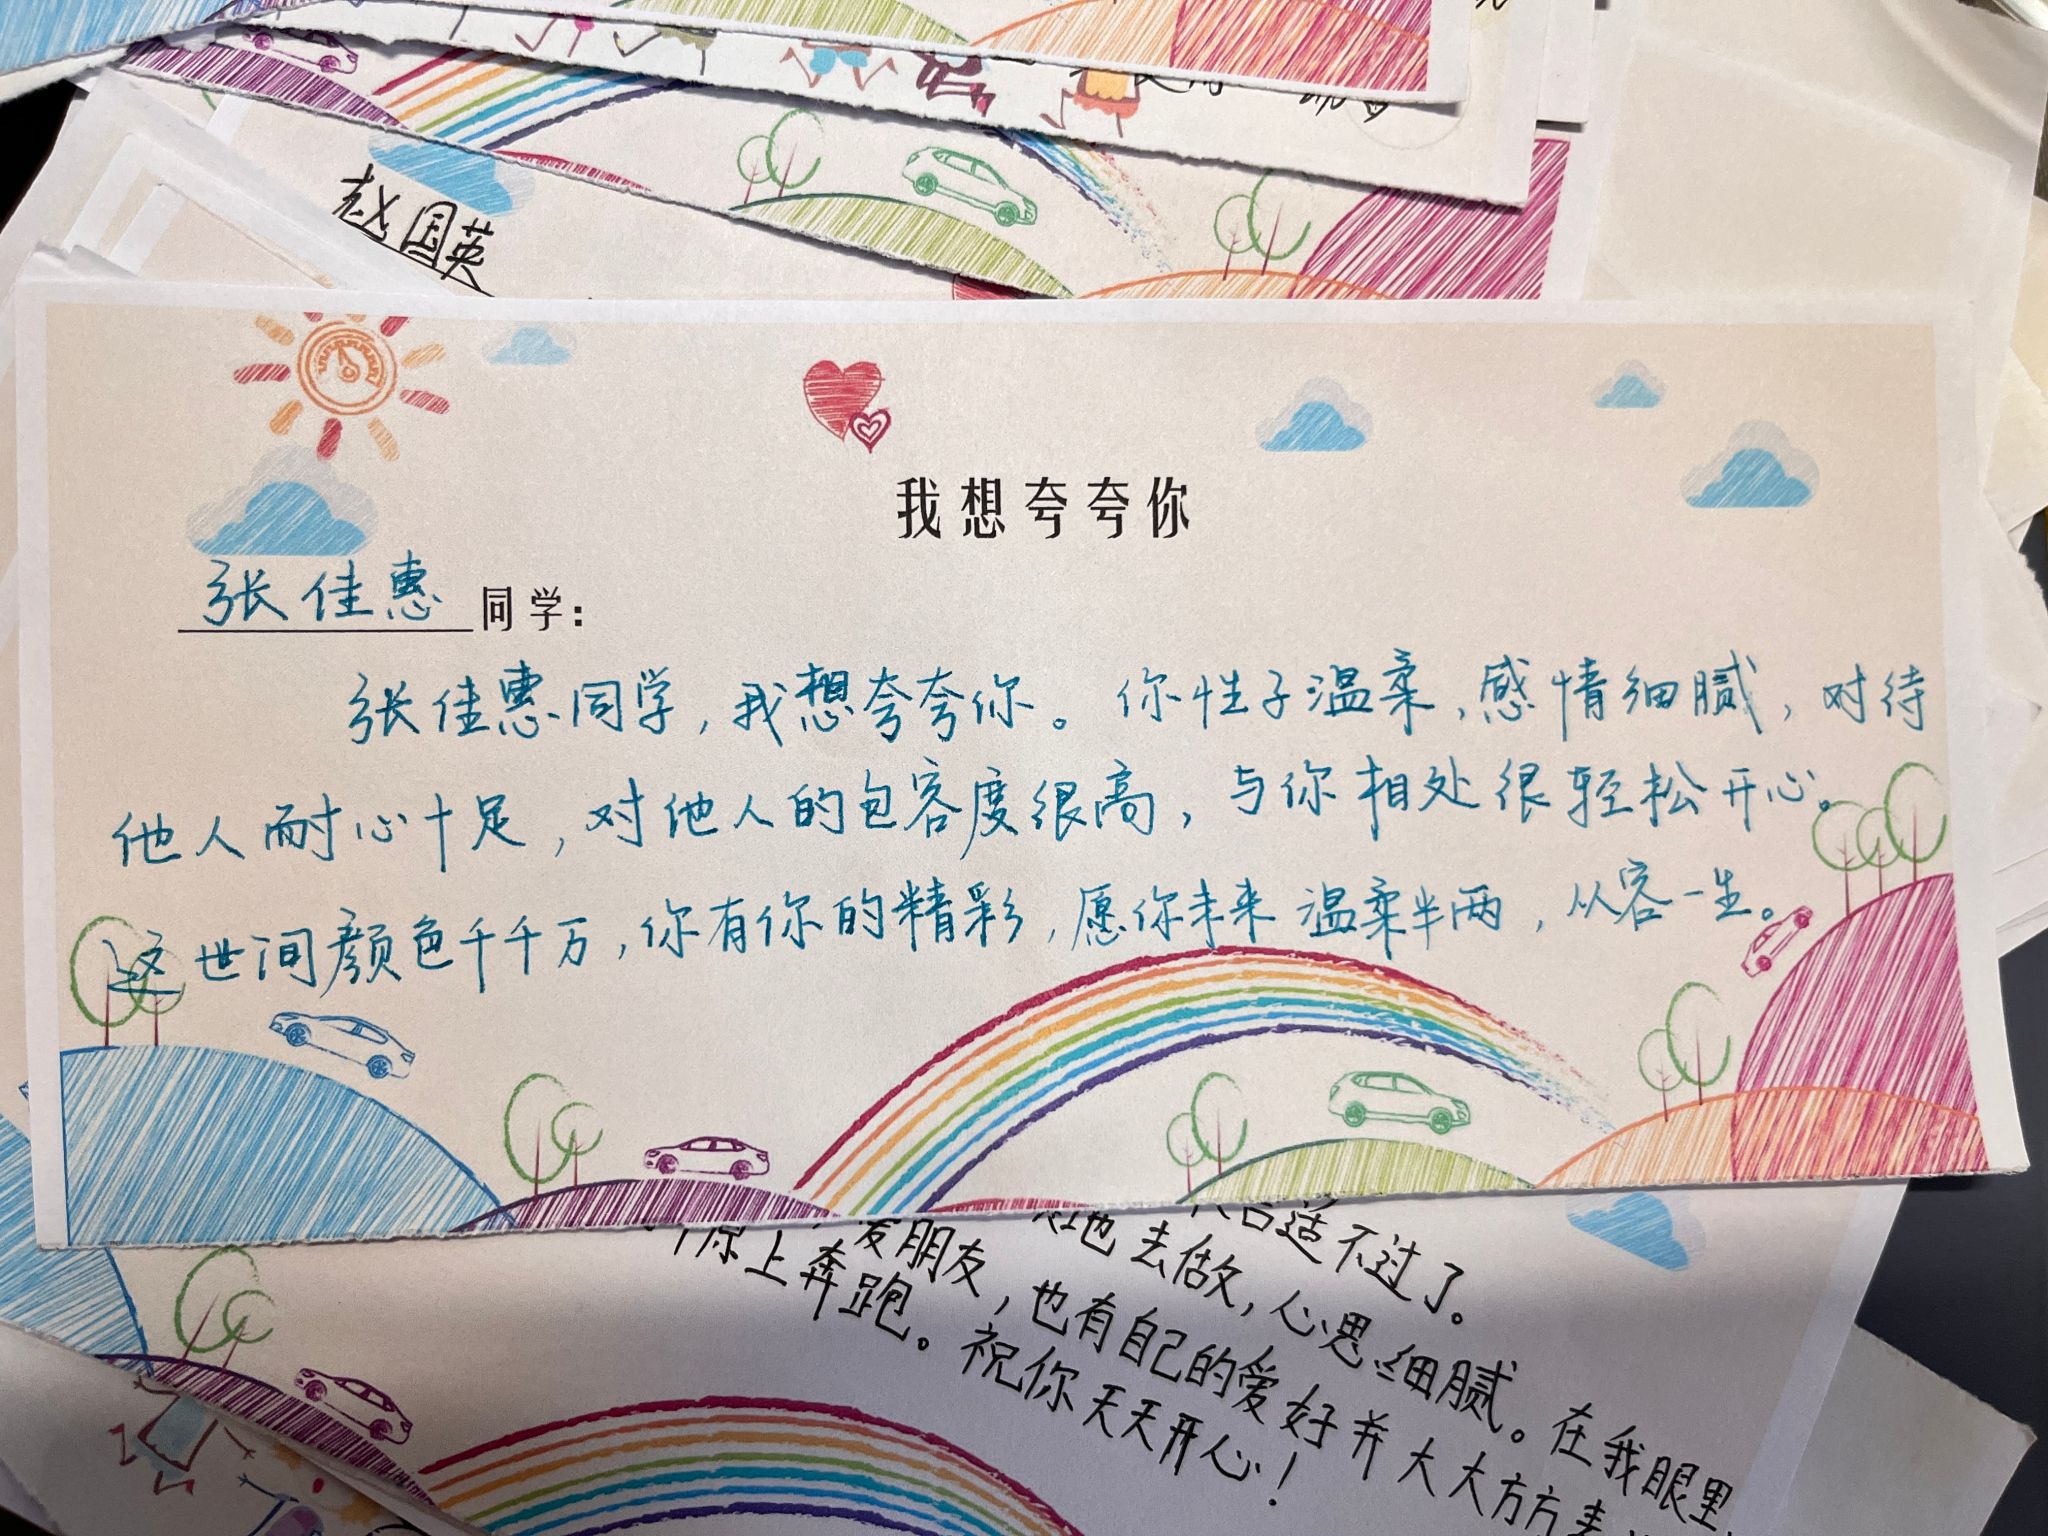 赵国英
我想夸夸你
张佳惠同学:
张佳惠同学,我想夸夸你。你性子温柔,感情细腻,对待
他人耐心十足,对他人的包容度很高,与你相处很轻松开心。
这世间颜色千千万,你有你的精彩,愿你未来温柔半两,从容一生。
合适不过了。
地去做,心思细腻。在我眼里,
爱朋友,也有自己的爱好并大大方方
上奔跑。祝你天天开心!